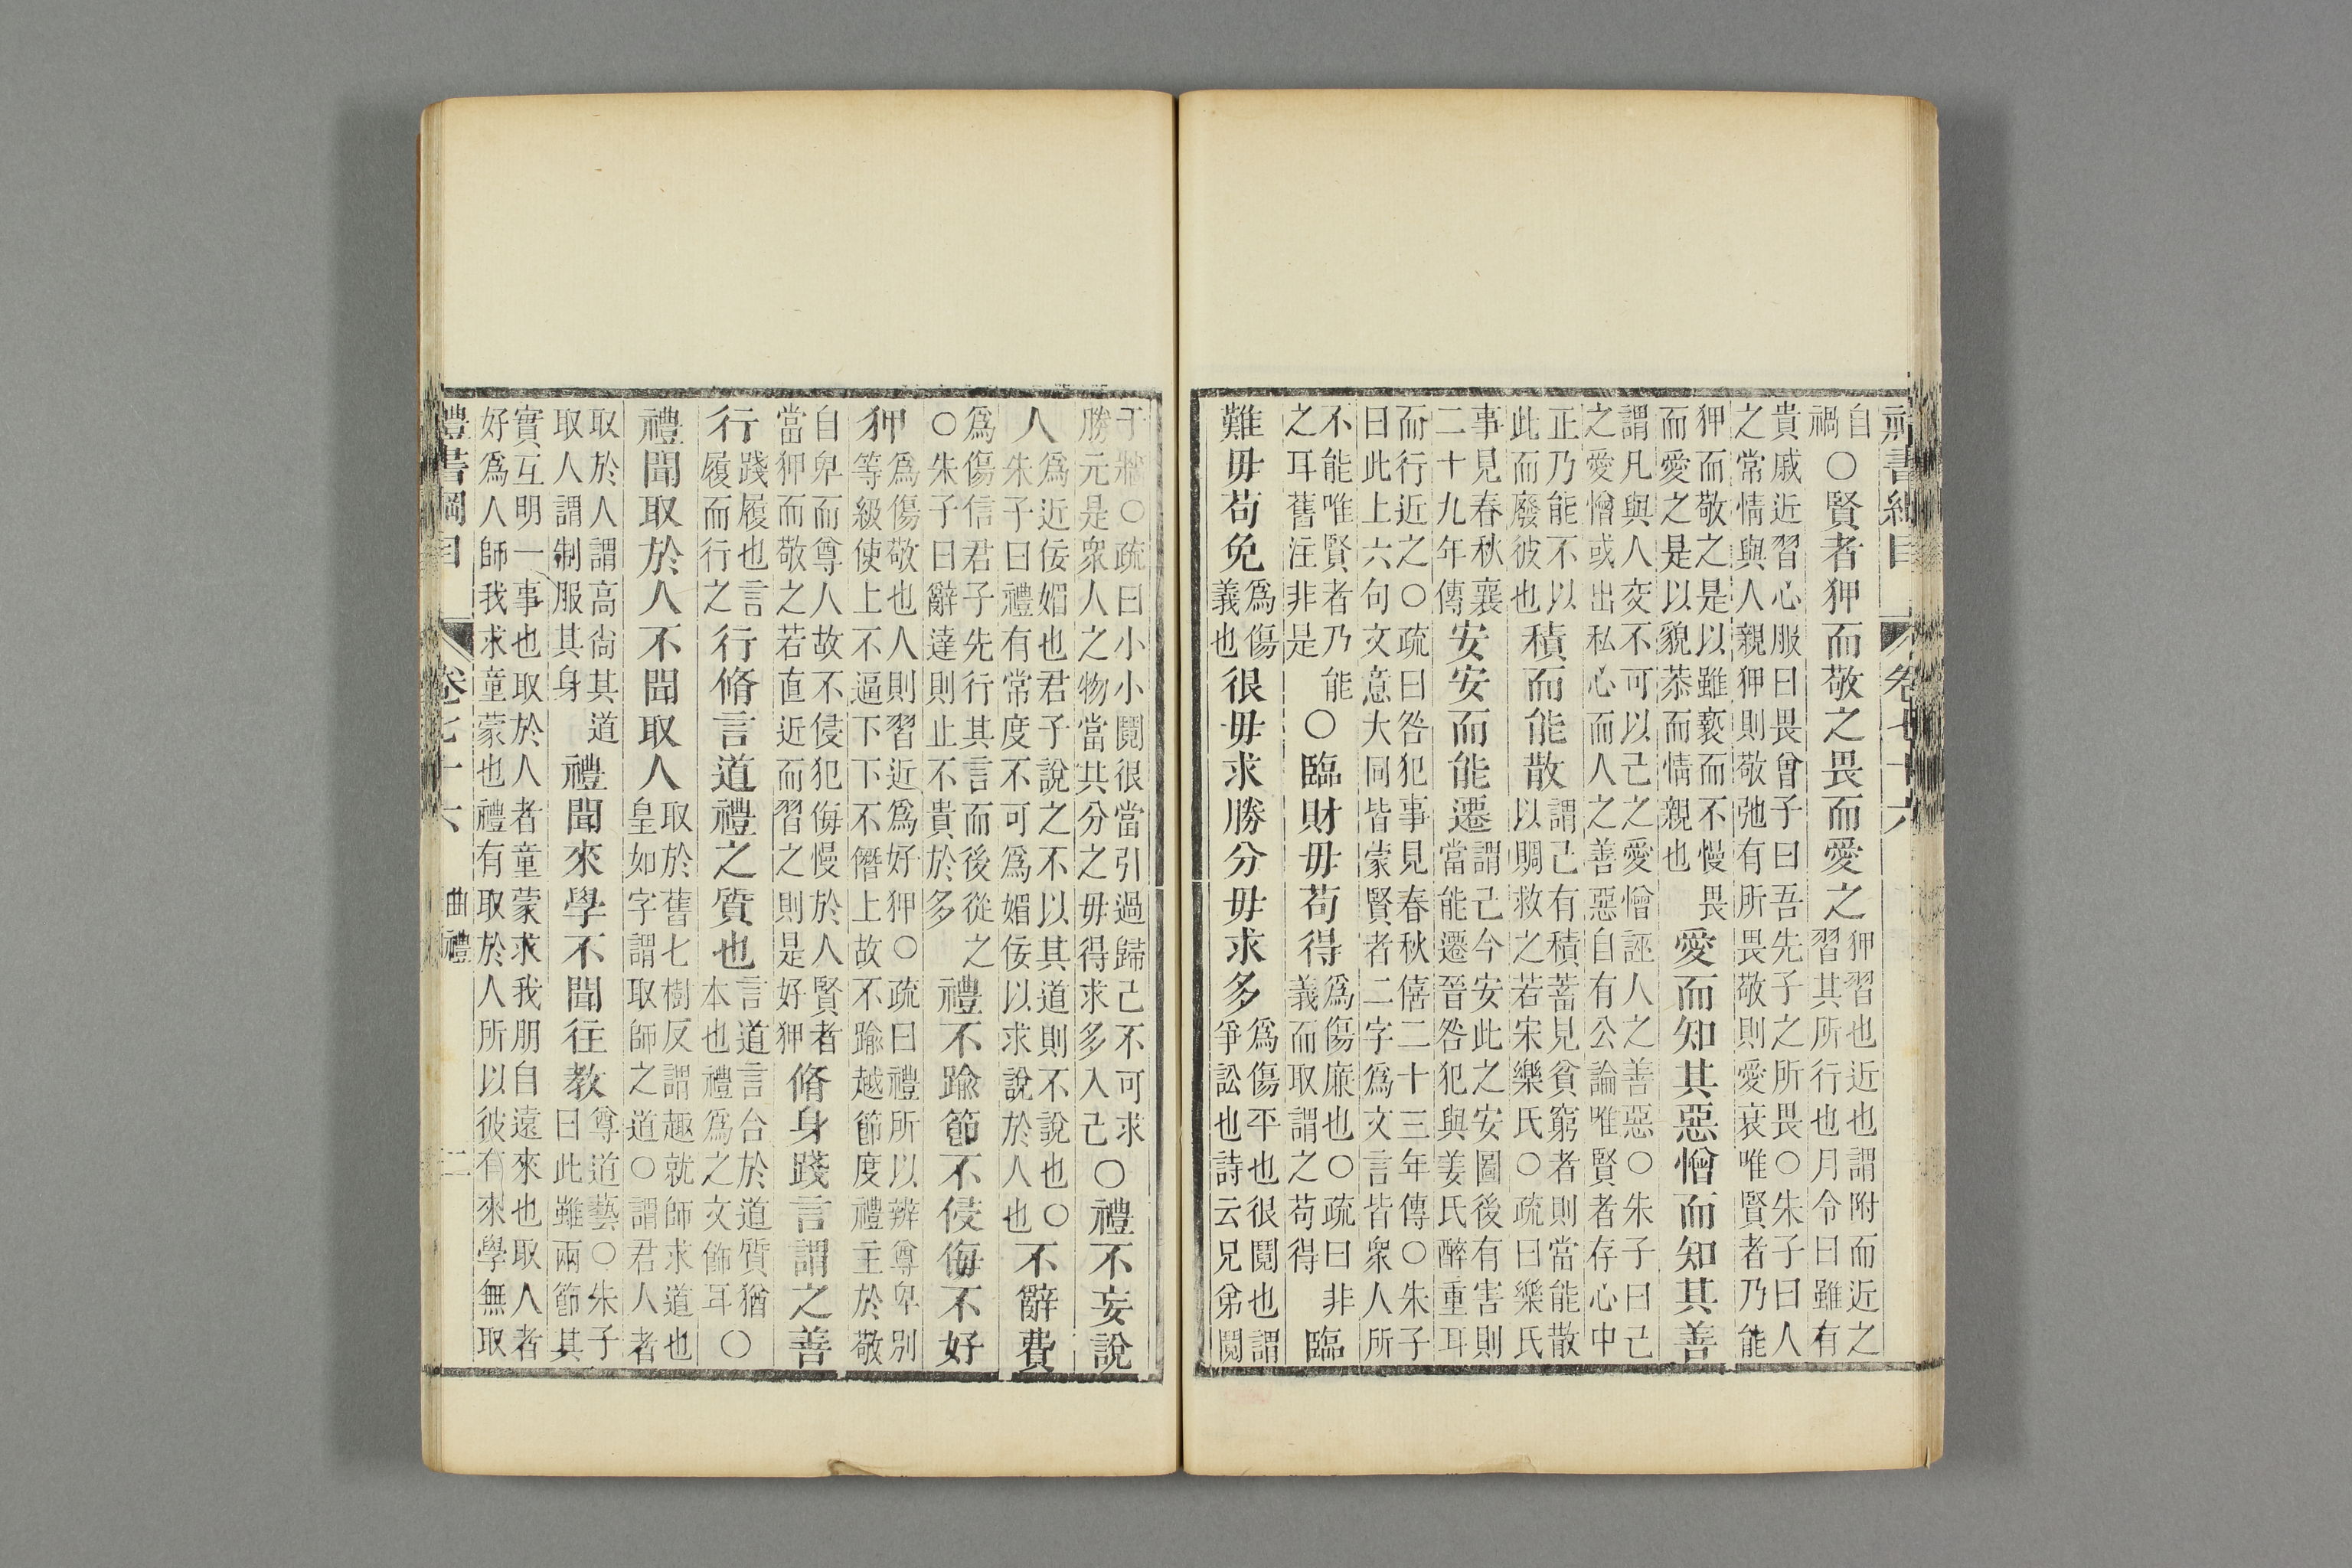 禮書綱目 卷七十六
自
禍
○賢者狎而敬之畏而愛之
狎習也近也謂附而近之
習其所行也月令曰雖有
貴戚近習心服曰畏曾子曰吾先子之所畏○朱子曰人
之常情與人親狎則敬弛有所畏敬則愛衰唯賢者乃能
狎而敬之是以雖褻而不慢畏
而愛之是以貌恭而情親也
愛而知其惡憎而知其善
謂凡與人交不可以己之愛憎誣人之善惡○朱子曰己
之愛憎或出私心而人之善惡自有公論唯賢者存心中
正乃能不以
此而廢彼也
積而能散
謂己有積蓄見貧窮者則當能散
以賙救之若宋樂氏○疏曰樂氏
事見春秋襄
二十九年傳
安安而能遷
謂己今安此之安圖後有害則
當能遷晉咎犯與姜氏醉重耳
而行近之○疏曰咎犯事見春秋僖二十三年傳○朱子
曰此上六句文意大同皆蒙賢者二字爲文言皆衆人所
不能唯賢者乃能
之耳舊注非是
○臨財毋苟得
爲傷廉也○疏曰非
義而取謂之苟得
臨
難毋苟免
爲傷
義也
很毋求勝分毋求多
爲傷平也很鬩也謂
爭訟也詩云兄弟鬩
于牆○疏曰小小鬩很當引過歸己不可求
勝元是衆人之物當共分之毋得求多入己
○禮不妄說
人
爲近佞媚也君子說之不以其道則不說也○
朱子曰禮有常度不可爲媚佞以求說於人也
不辭費
爲傷信君子先行其言而後從之
○朱子曰辭達則止不貴於多
禮不踰節不侵侮不好
狎
爲傷敬也人則習近爲好狎○疏曰禮所以辨尊卑別
等級使上不逼下下不僭上故不踰越節度禮主於敬
自卑而尊人故不侵犯侮慢於人賢者
當狎而敬之若直近而習之則是好狎
脩身踐言謂之善
行
踐履也言
履而行之
行脩言道禮之質也
言道言合於道質猶
本也禮爲之文飾耳
○
禮聞取於人不聞取人
取於舊七樹反謂趣就師求道也
皇如字謂取師之道○謂君人者
取於人謂高尙其道
取人謂制服其身
禮聞來學不聞往教
尊道藝○朱子
曰此雖兩節其
實互明一事也取於人者童蒙求我朋自遠來也取人者
好爲人師我求童蒙也禮有取於人所以彼有來學無取
禮書綱目 卷七十六 曲禮 二